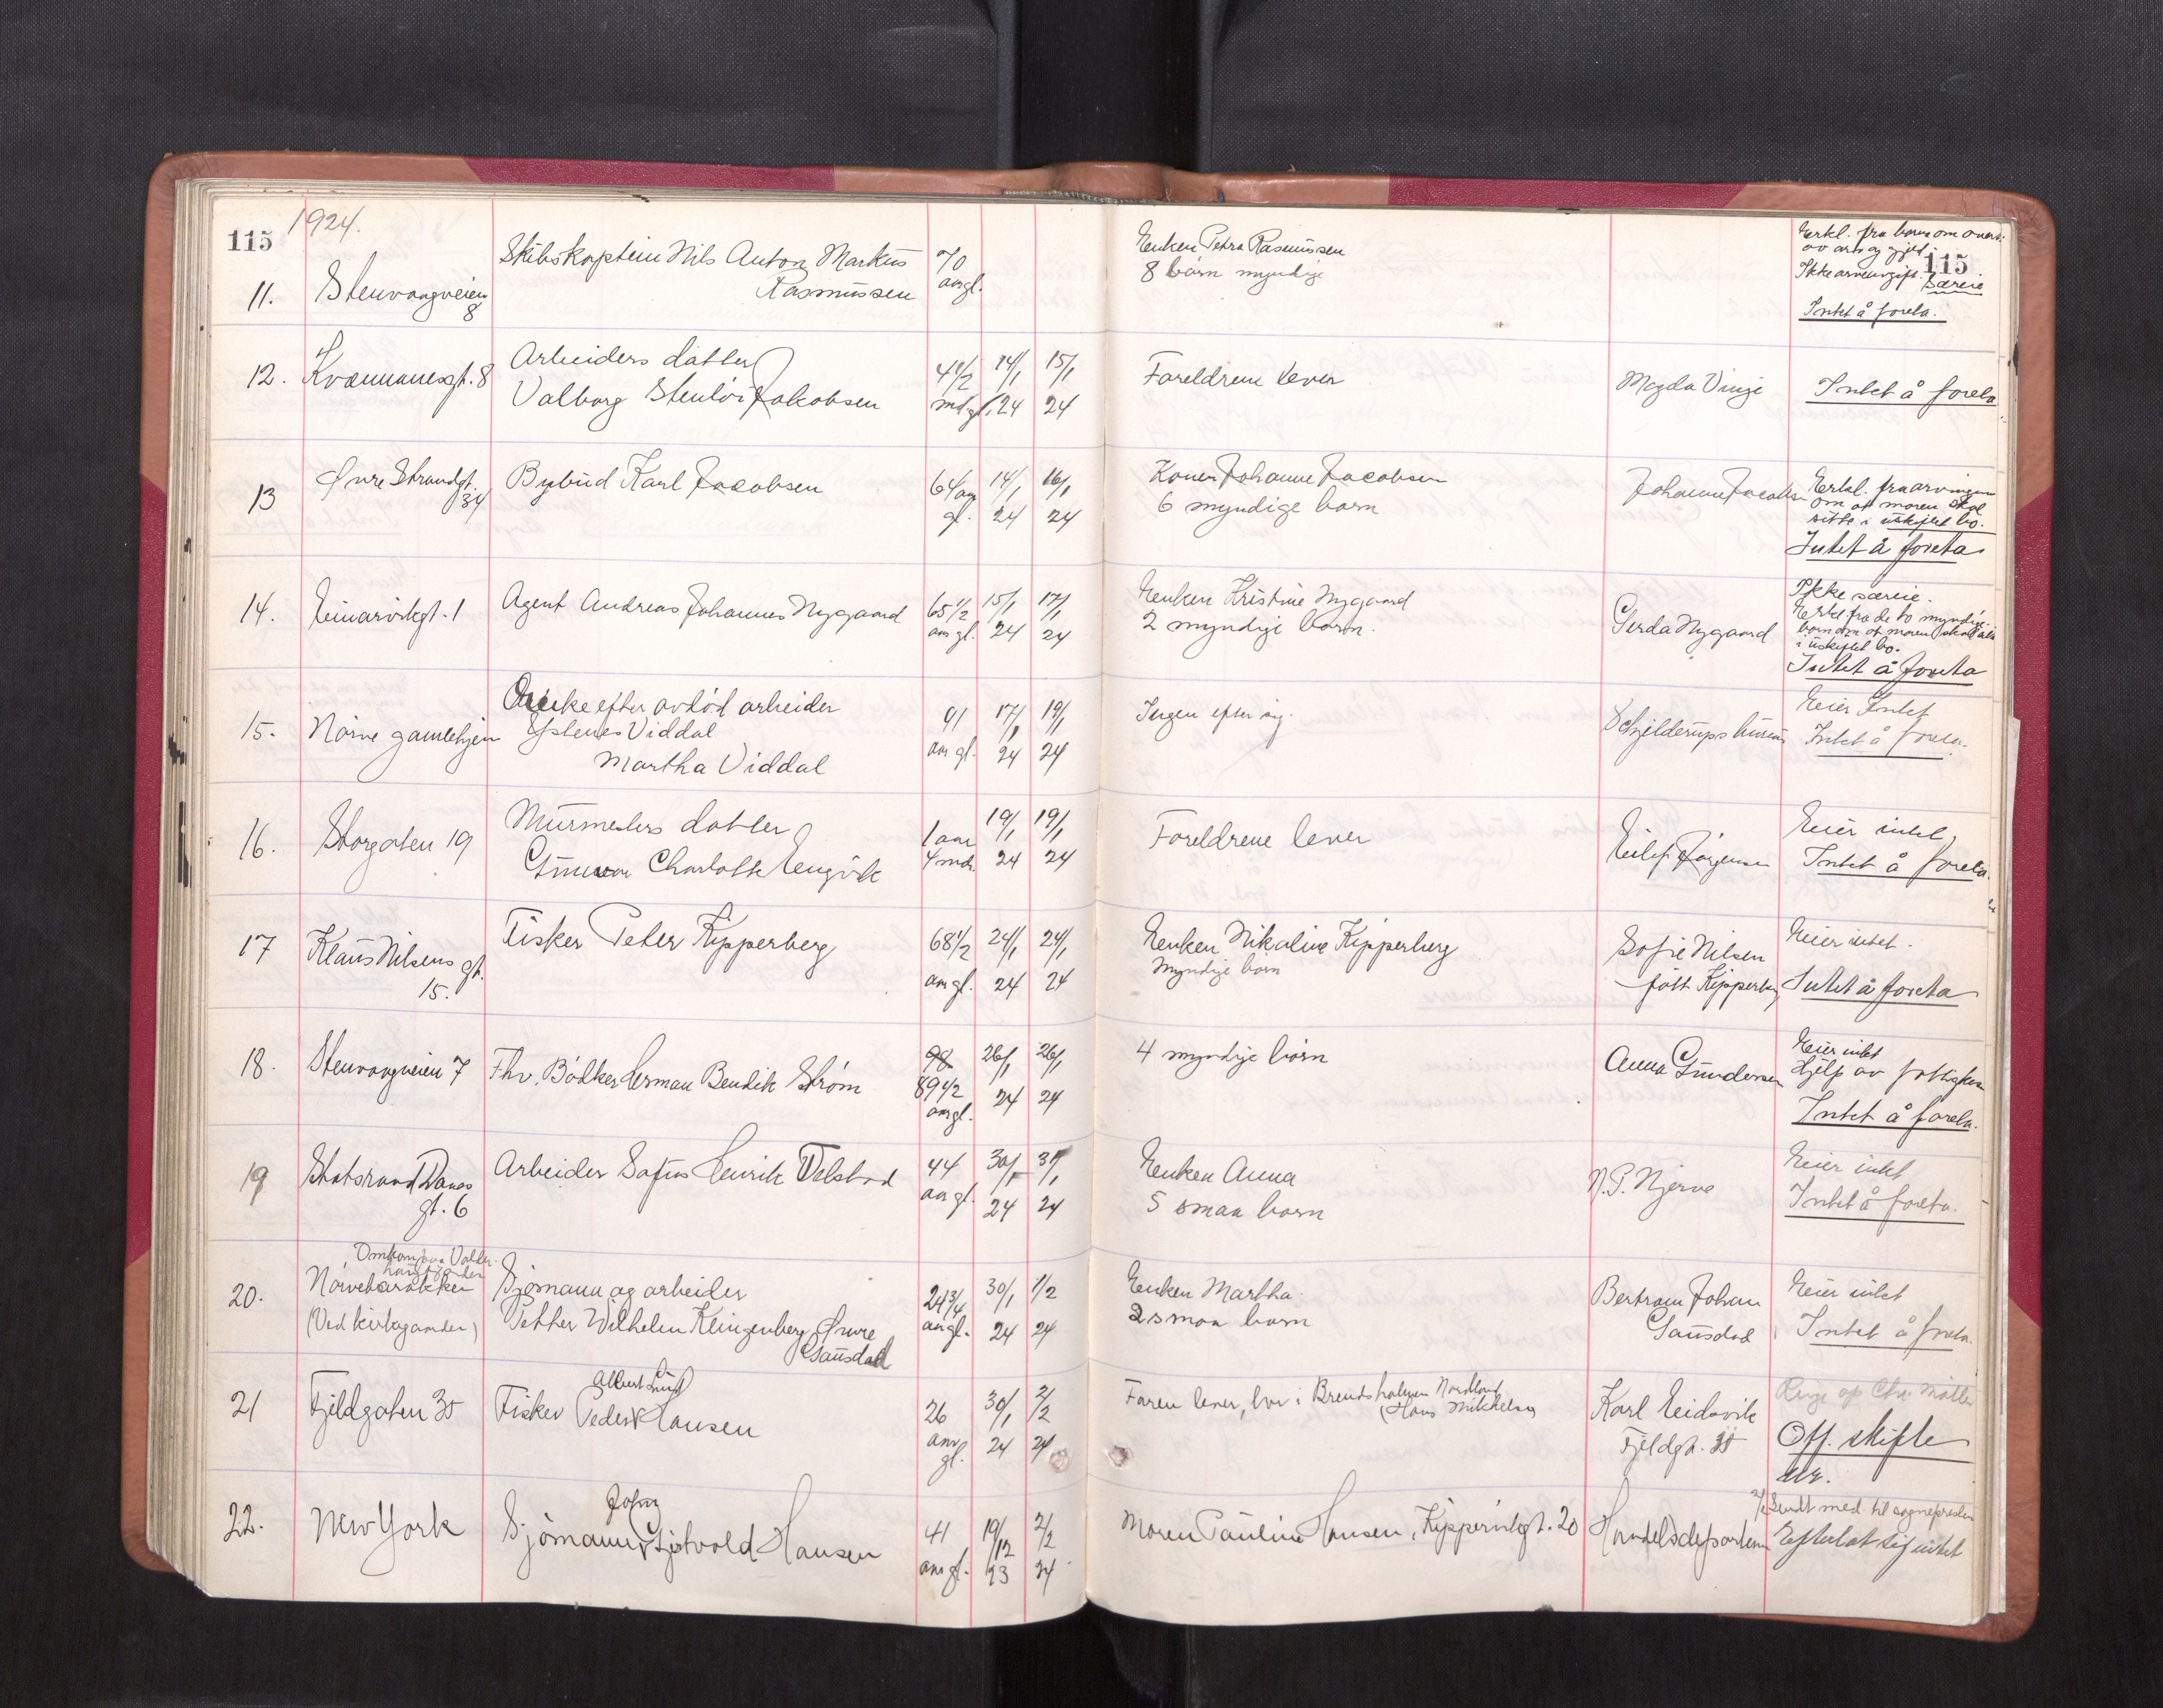 115
1924.
11.
Stenvaagveien
8
Skibskaptein Nils Anton Markus
Rasmussen
70
aargl.
Enken Petra Rasmussen
8 børn myndige
Erkl. fra
av arv og gjeld.
115
Ikke arveavgift. Særeie
Intet å foreta.
12.
Kvennanesgt. 8
Arbeiders datter
Valborg Stenløv Jakobsen
4 1/2
md.gl.
14/1
24
15/1
24
Foreldrene lever
Magda Vinje
Intet å foreta
13
Øvre Strandgt.
34
Bybud Karl Jacobsen
64 aar
gl.
14/1
24
16/1
24
Konen Johanne Jacobsen
6 myndige børn
Johanne Jacobsen
Erkl. fra arvingene
om at moren skal
sitte i uskiftet bo.
Intet å foreta
14.
Einarvikgt. 1
Agent Andreas Johannes Nygaard
65 1/2
aar gl.
15/1
24
17/1
24
Enken Kristine Nygaard
2 myndige børn.
Gerda Nygaard
Ikke særeie.
Erkl fra de to myndige
børn om at moren skal
i uskiftet bo.
Intet å foreta
15.
Nørve gamlehjem
Enke efter avdød arbeider
Viddal
Martha Viddal
91
aar gl.
17/1
24
19/1
24
Ingen efter sig.
Schjelderups
Eier Intet
Intet å foreta.
16.
Storgaten 19
Murmesters datter
Charlotte Engvik
1 aar
4 mdr.
19/1
24
19/1
24
Foreldrene lever
Eilif Jørgensen
Eier intet
Intet å foreta.
17
Klaus Nilsens gt.
15.
Fisker Peter Kipperberg
68 1/2
aar gl.
24/1
24
24/1
24
Enken Nikoline Kipperberg
Myndige børn
Sofie Nilsen
født Kipperberg
Eier intet.
Intet å foreta
18.
Stenvaagveien 7
Fhv. Bødker Herman Bendik Strøm
98
89 1/2
aargl.
26/1
24
26/1
24
4 myndige børn
Anna Gundersen
Eier intet
Hjelp av
Intet å foreta.
19
Statsraad Daaes
gt. 6
Arbeider Sofus Henrik Velstad
44
aar gl.
30/1
24
31/1
24
Enken Anna
5 smaa børn
N.P. Njerve
Eier intet
Intet å foreta.
20.
Omkom paa
Nørvebarakken
(Ved kirkegaarden)
Sjømann og arbeider
Petter Wilhelm Klingenberg Øvre
Gausdal
24 3/4
aar gl.
30/1
24
1/2
24
Enken Martha.
2 smaa børn
Bertram Johan
Gausdal
Eier intet
Intet å foreta.
21
Fjeldgaten 35
Albert
Fisker Peder Hansen
26
aar
gl.
30/1
24
2/2
24
Faren lever, bor i Brendsholmen Nordland
(Hans Mikkelsen)
Karl Eidsvik
Fjeldgt. 35
Off. skifte
22.
New York
John
Sjømann Gjøtvold Hansen
41
aar gl.
19/12
23
2/2
24
Moren Pauline Hansen, Kippervikgt. 20
Handelsdepartem
Sendt med. til sogneprest
Efterlot sig intet